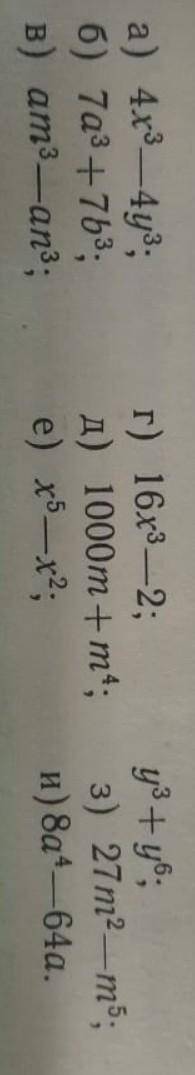 а) 4x³—4y³;
б) 7a³+7b³;
в) am³—an³;
г) 16x³—2;
д) 1000m+m⁴;
е) x⁵—x²;
y³+y⁶;
з) 27m²—m⁵;
и) 8a⁴—64a.